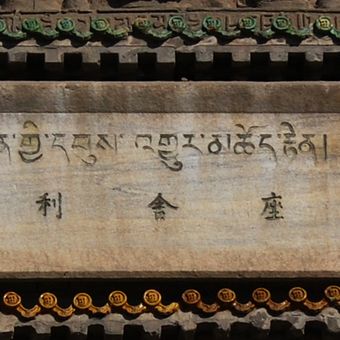 གྱི་དབུས་འགྱུར་མཆོད་རྟེན།
座舍利